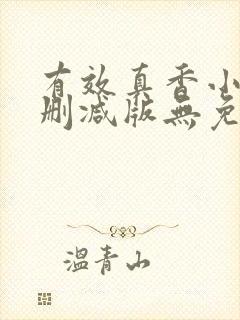 有效真香小
删减版無免
溫青山